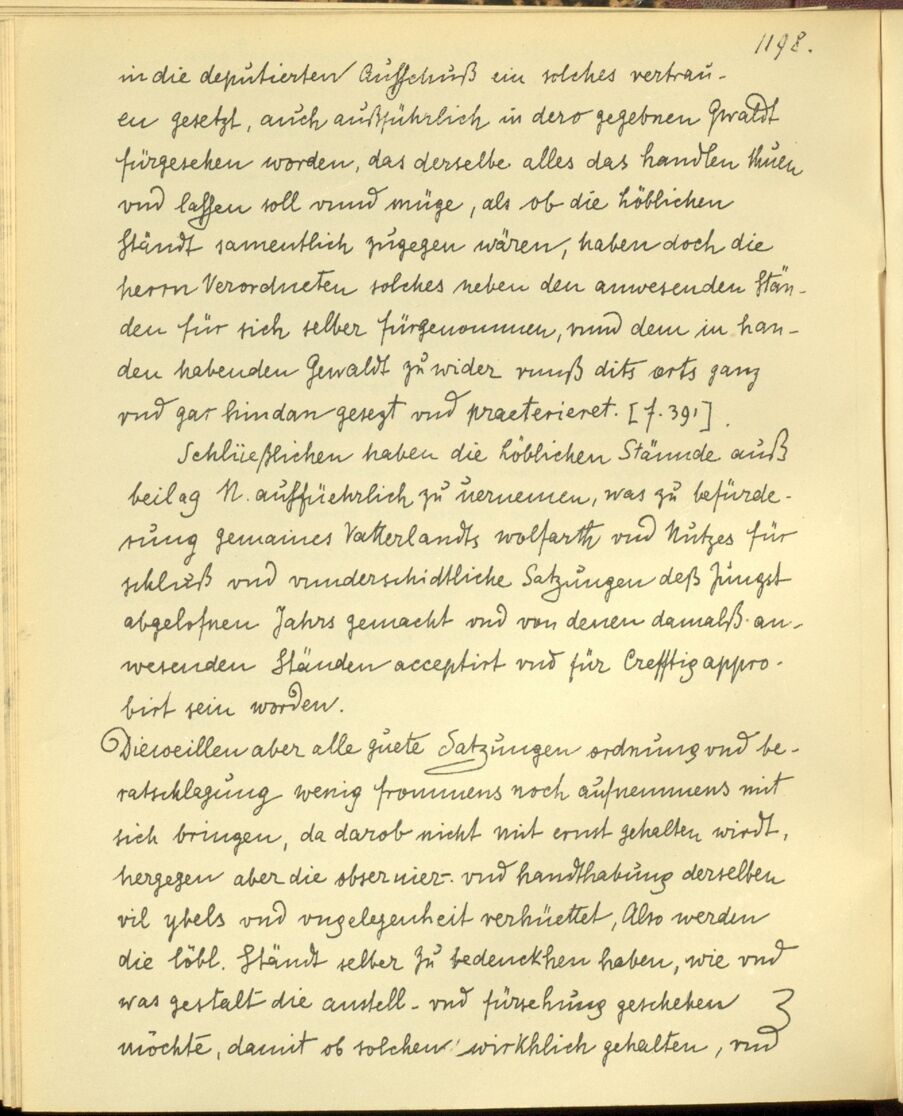 1198.
in die deputierten Ausschuß ein solches vertrau-
en gesetzt, auch außführlich in dero gegebnen Gwaldt
fürgesehen worden, das derselbe alles das handlen thuen
vnd lassen soll vnnd müge, als ob die löblichen
Ständt samentlich zugegen wären, haben doch die
herrn Verordneten solches neben den anwesenden Stän-
den für sich selber fürgenommen, vnnd dem in han-
den habenden Gewaldt zu wider vnnß dits orts ganz
vnd gar hindan gesezt vnd praeterieret. [f. 39']
Schlüeßlichen haben die löblichen Stännde auß
beilag N. außfüehrlich zu uernemen, was zu befürde-
rung gemaines Vatterlandts wolfarth vnd Nutzes für
schluß vnd vnnderschidtliche Satzungen deß Jüngst
abgelofnen Jahrs gemacht vnd von denen damalß an-
wesenden Ständen acceptirt vnd für Crefftig appro-
birt sein worden.
Dieweillen aber alle guete Satzungen ordnung vnd be-
ratschlagung wenig frommens noch aufnemmens mit
sich bringen, da darob nicht mit ernst gehalten wirdt,
hergegen aber die obseruier- vnd handthabung derselben
vil ybels vnd vngelegenheit verhüettet, Also werden
die löbl. Ständt selber Zu bedenckhen haben, wie vnd
was gestalt die anstell- vnd fürsehung geschehen
möchte, damit ob solchen wirkhlich gehalten, vnd